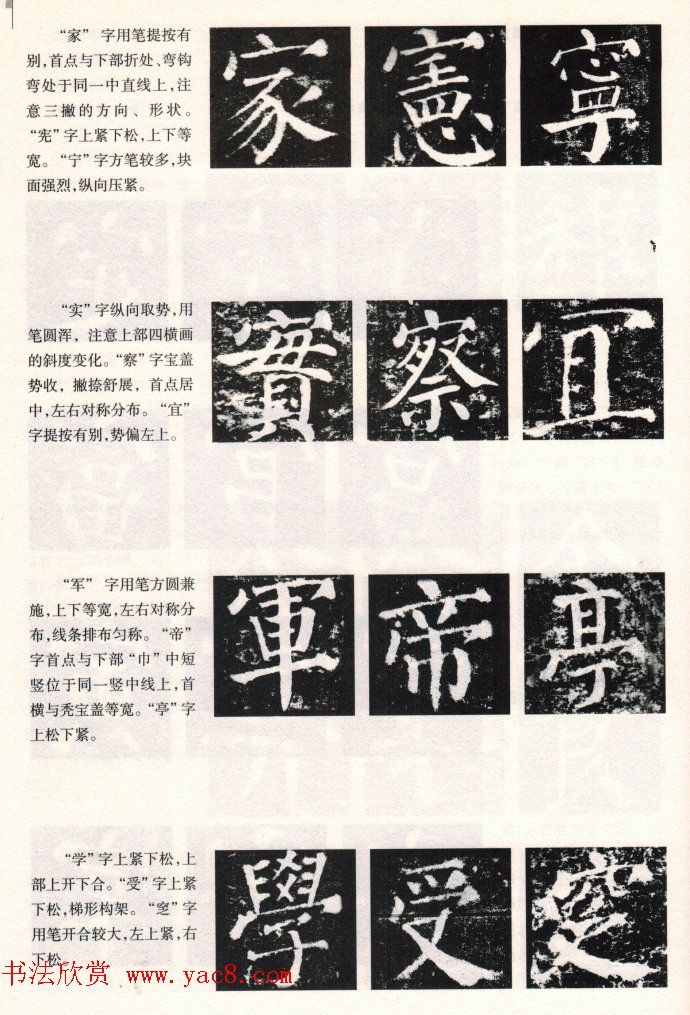 “家” 字用笔提按有
别,首点与下部折处、弯钩
弯处于同一中直线上,注
意三撇的方向、形状。
“宪”字上紧下松,上下等
宽。“宁”字方笔较多,块
面强烈,纵向压紧。
家 憲 寧
“实”字纵向取势,用
笔圆浑, 注意上部四横画
的斜度变化。“察”字宝盖
势收, 撇捺舒展, 首点居
中,左右对称分布。“宜”
字提按有别,势偏左上。
實 察 宜
“军” 字用笔方圆兼
施,上下等宽,左右对称分
布,线条排布匀称。“帝”
字首点与下部“巾”中短
竖位于同一竖中线上,首
横与秃宝盖等宽。“亭”字
上松下紧。
軍 帝 亭
“学”字上紧下松,上
部上开下合。“受”字上紧
下松,梯形构架。“”字
用笔开合较大,左上紧,右
下松。
學 受
书法欣赏 www.yac8.com